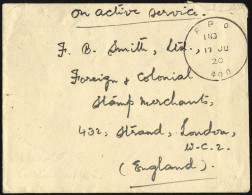 on active service.
F P O
143
17 JU
20
400
F. B. Smith, Ltd.,
Foreign & Colonial
Stamp Merchants,
432, Strand, London,
W.C.2.
(England).